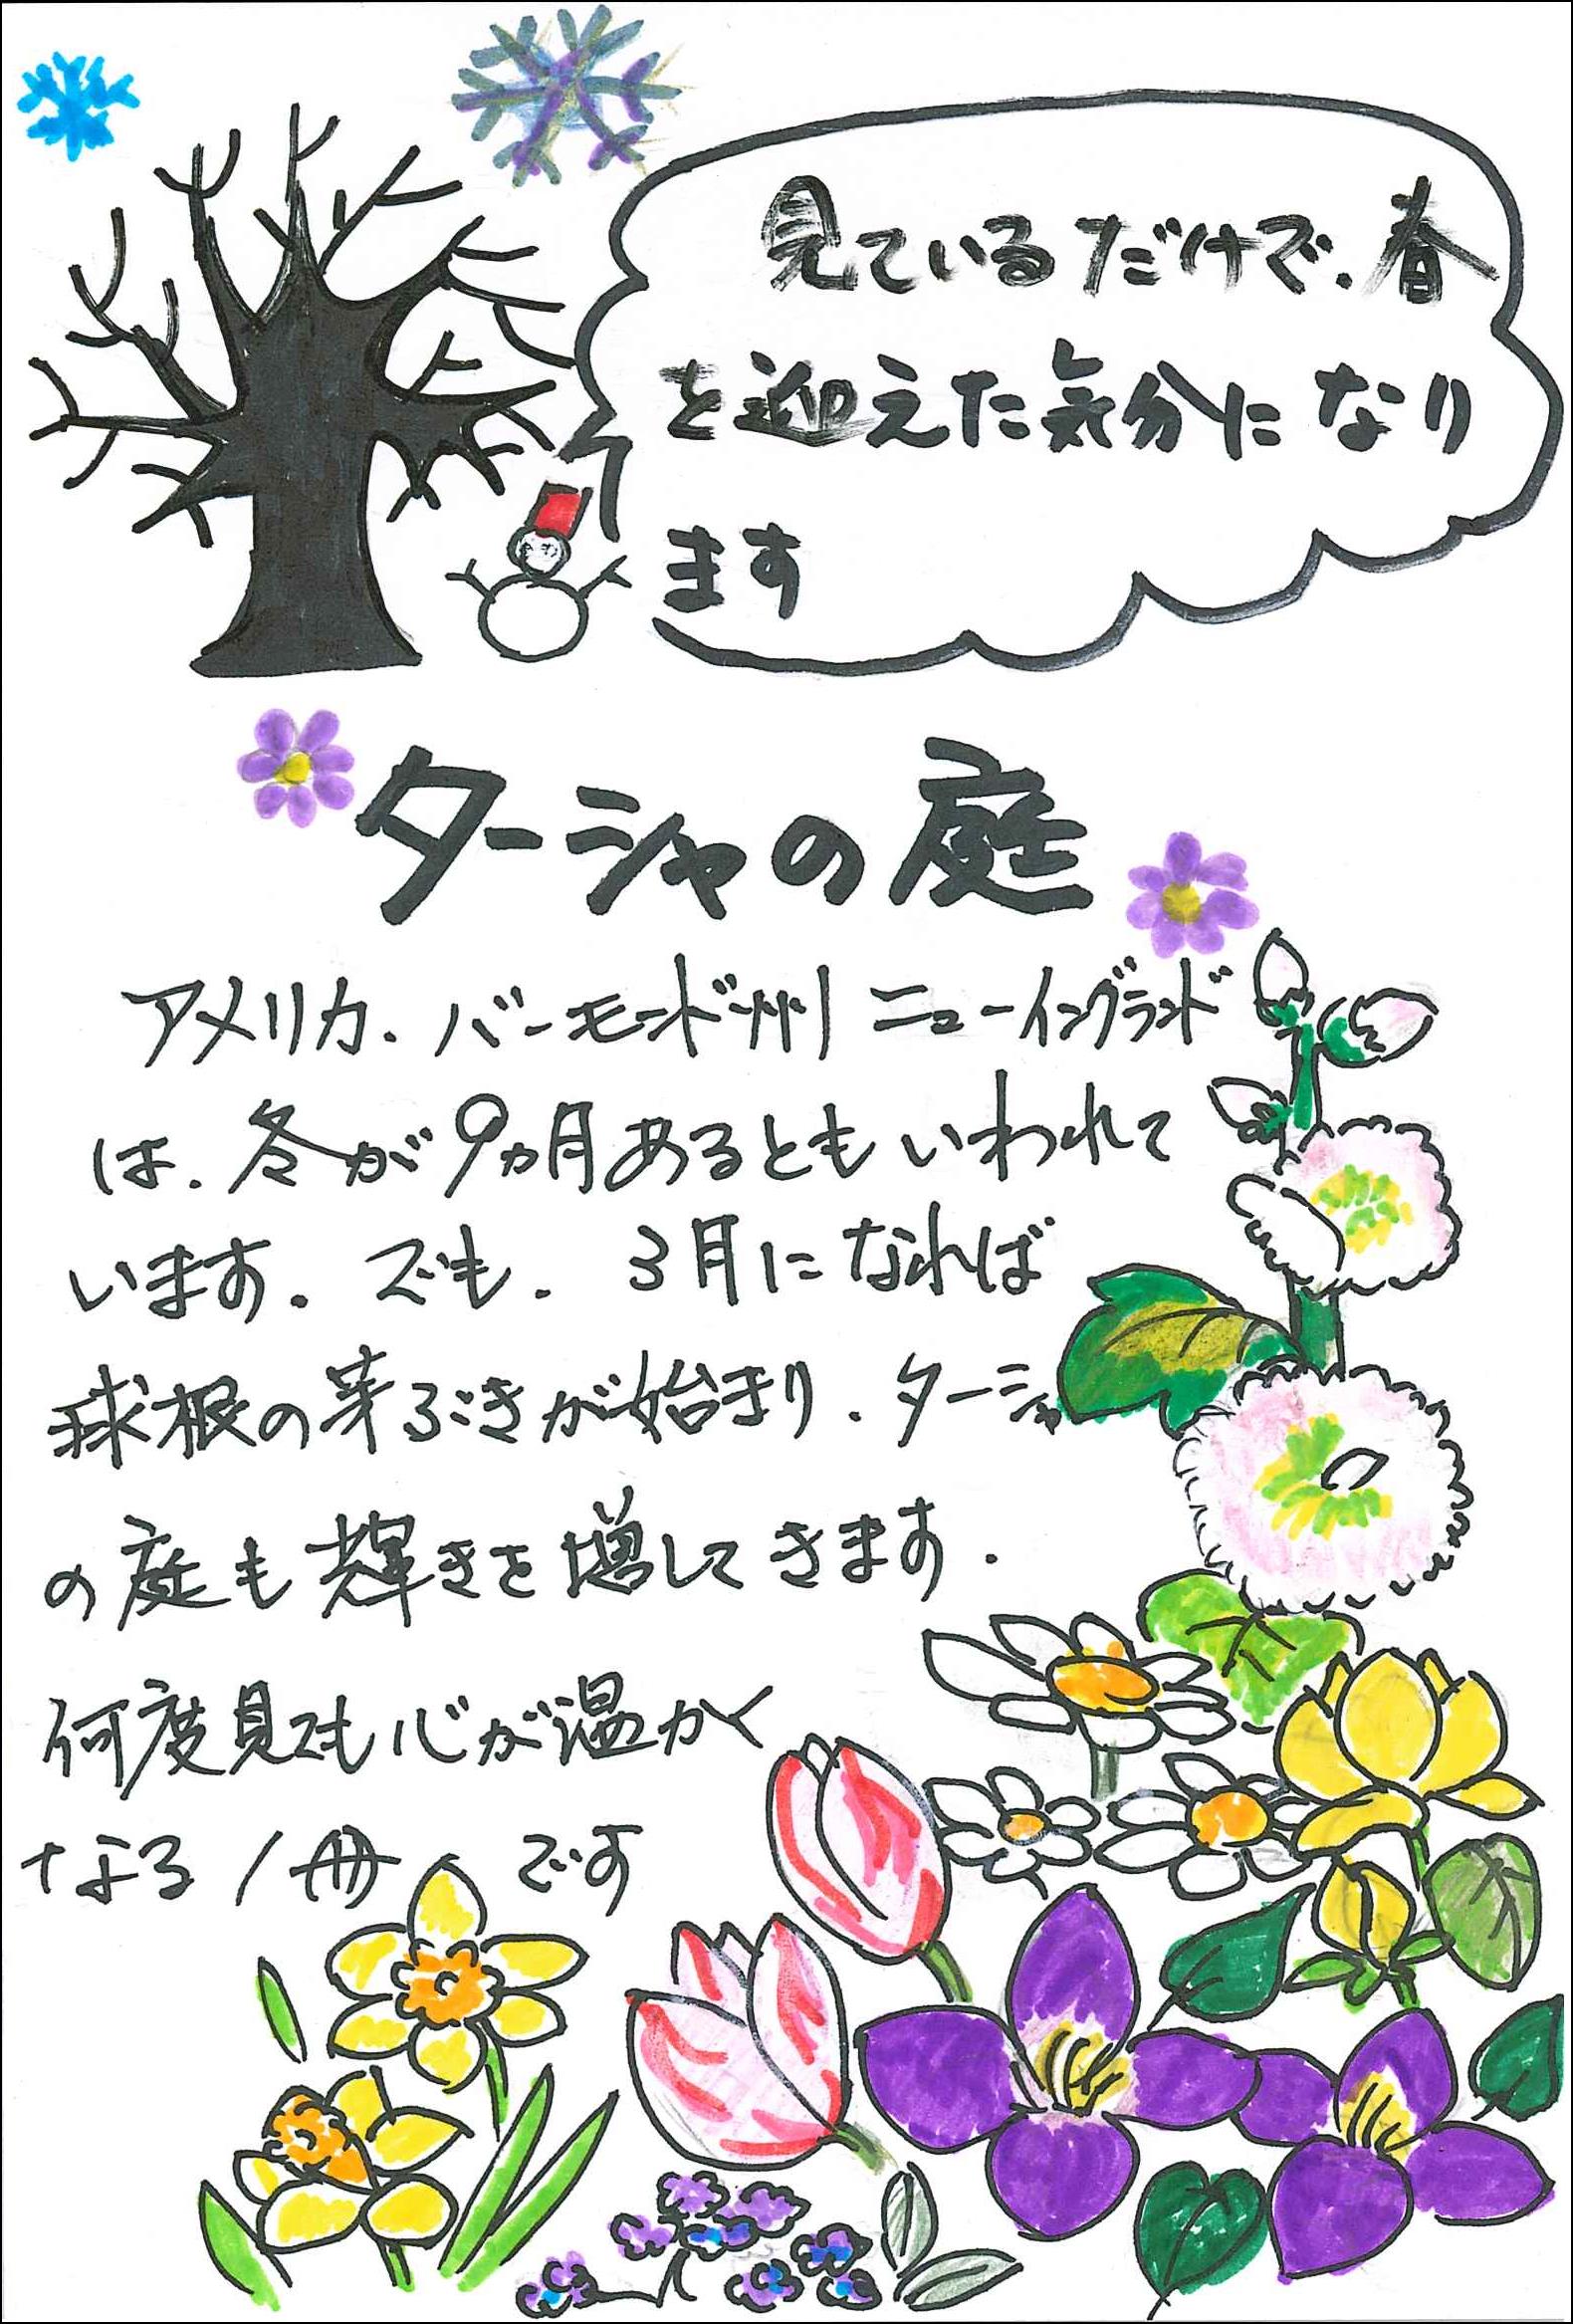 見ているだけで、春
を迎えた気分になり
ます
ターシャの庭
アメリカ、バーモンド州 ニューイングランド
は、冬が9ヵ月あるともいわれて
います。でも、3月になれば
球根の芽ぶきが始まり、ターシャ
の庭も輝きを増してきます。
何度見ても心が温かく
なる1冊です